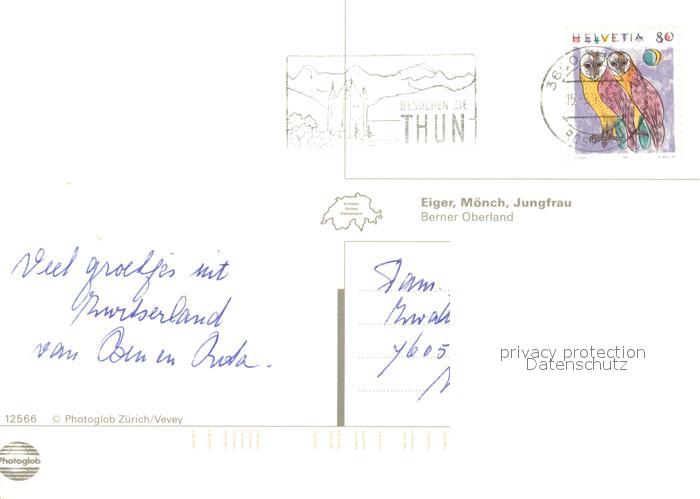 HELVETIA 80
3600
BESUCHEN SIE
THUN
Schweiz
Suisse
Switzerland
Eiger, Mönch, Jungfrau
Berner Oberland
Veel groetjes uit
Zwitserland
van Ben en
Fam.
7605
privacy protection
Datenschutz
12566 © Photoglob Zürich/Vevey
Photoglob